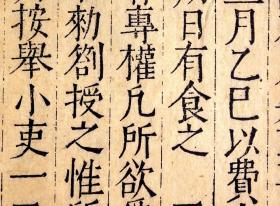 月乙巳以費
日有食之
專權凡所欲
劄授之惟所
按舉小吏一